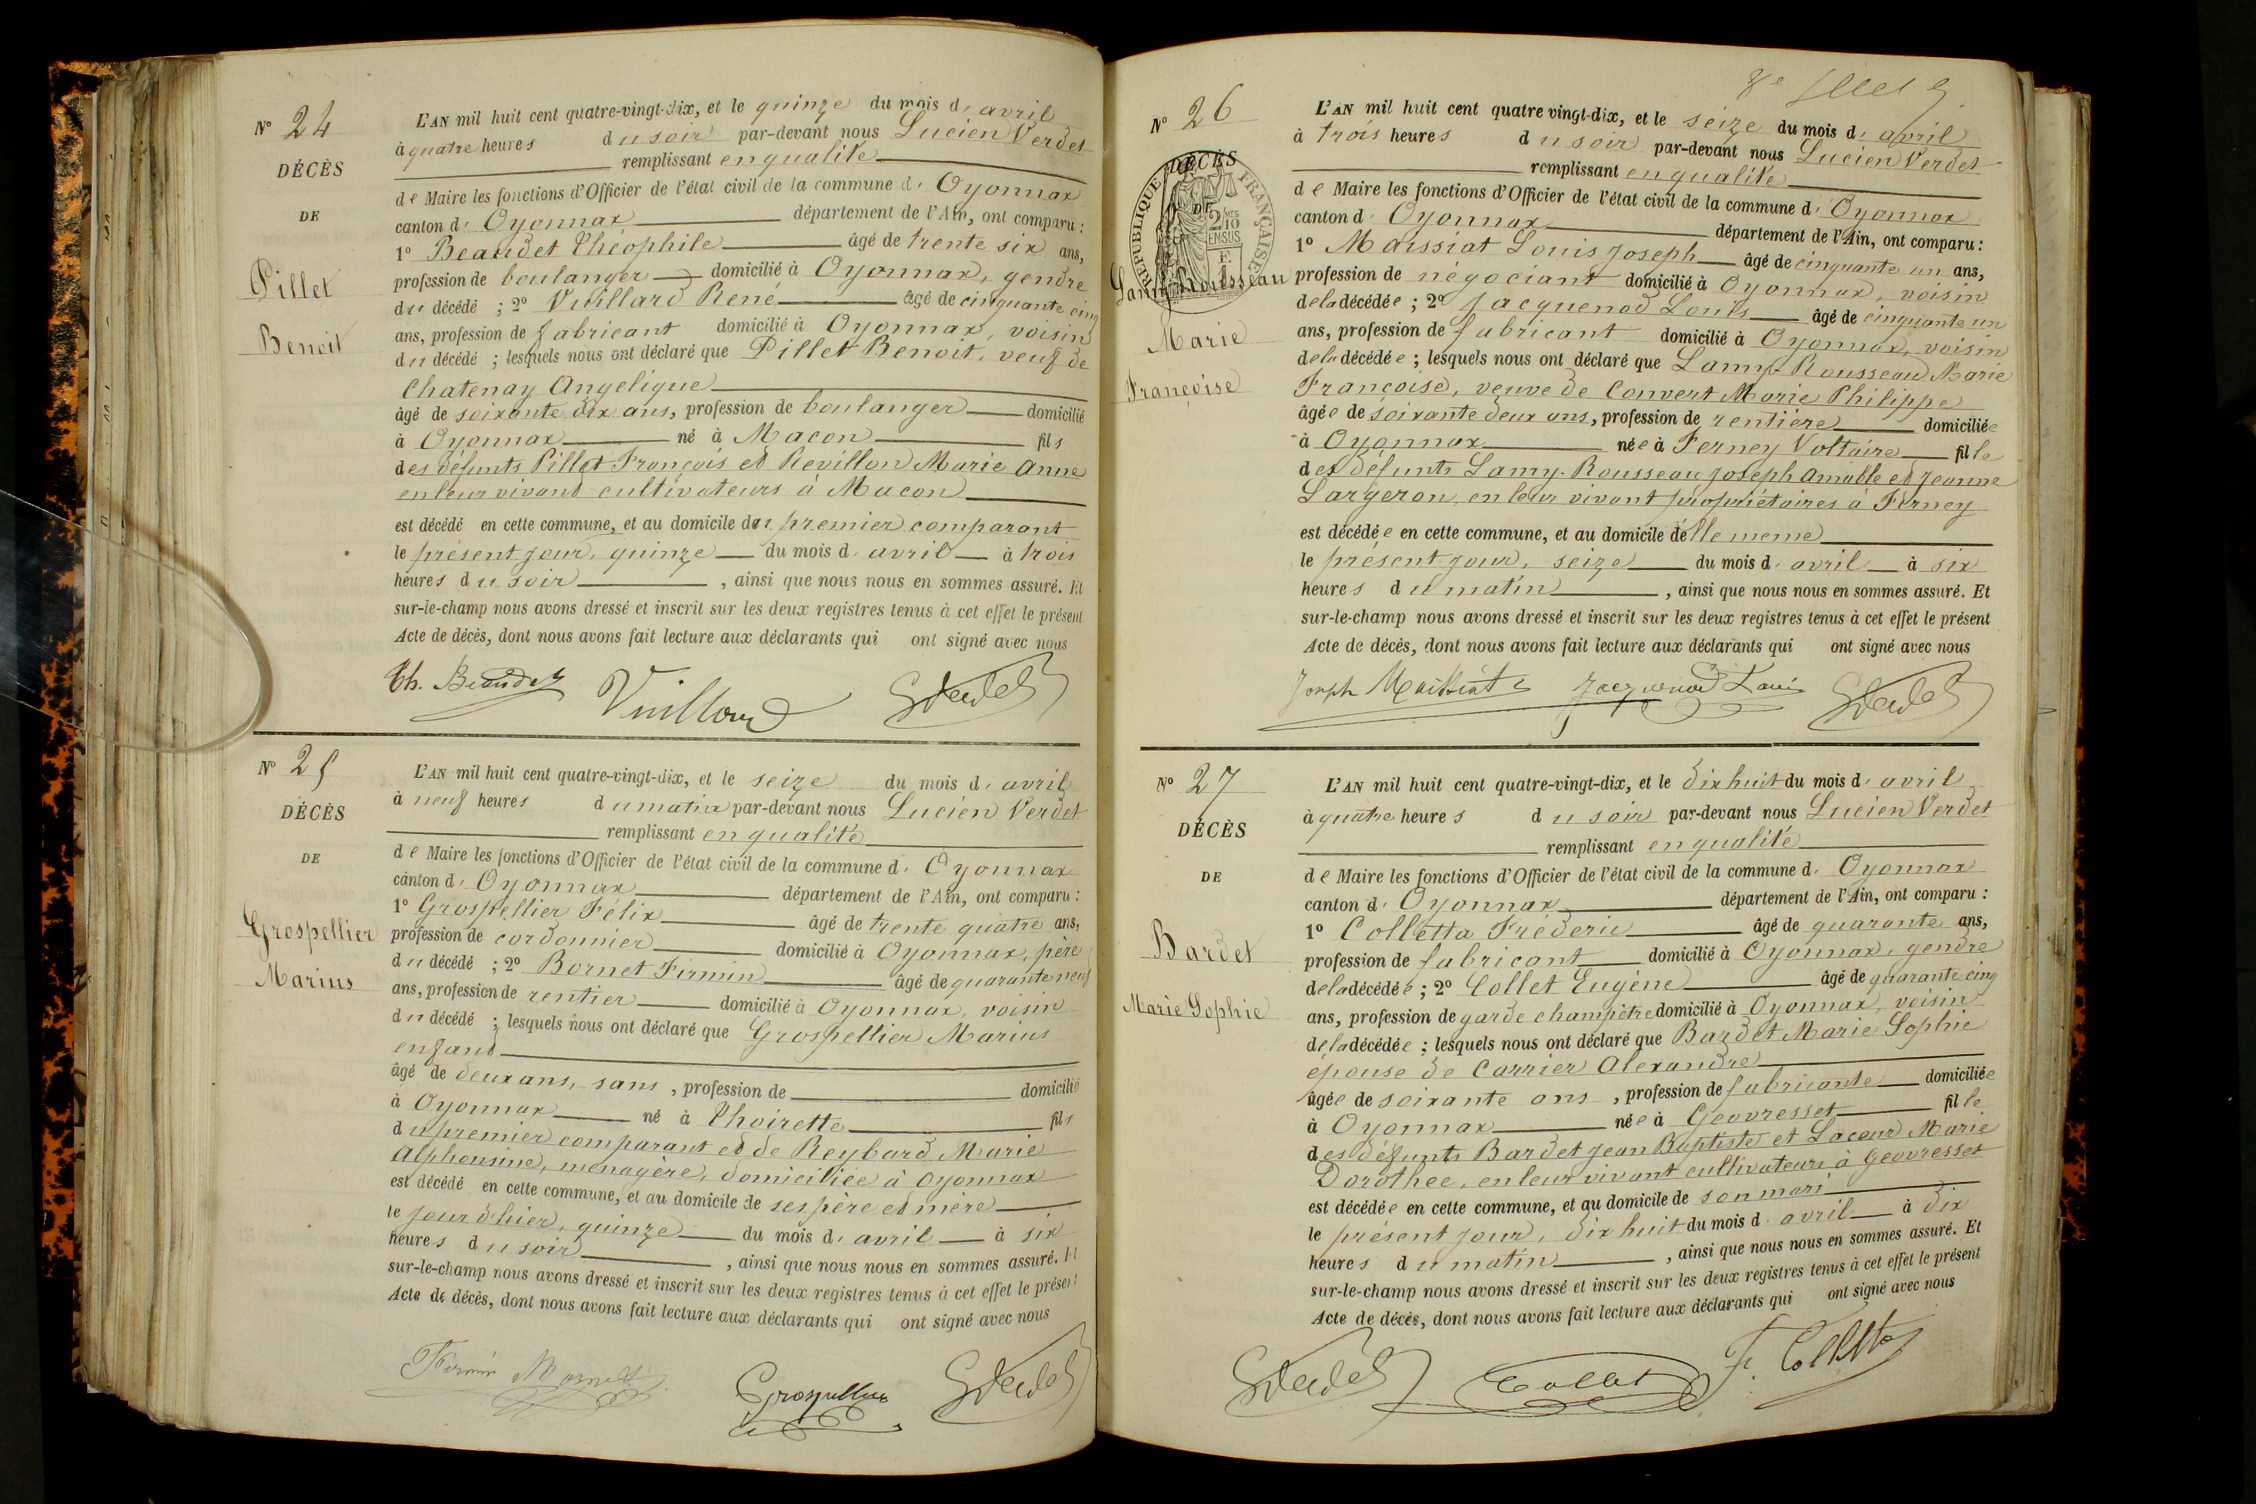 N° 24
DÉCÈS
DE
Pillet
Benoit
L'AN mil huit cent quatre-vingt-dix, et le quinze du mois d'avril
à quatre heures du soir par-devant nous Lucien Verdet
remplissant en qualité
de Maire les fonctions d'Officier de l'état civil de la commune d'Oyonnax
canton d'Oyonnax département de l'Ain, ont comparu :
1° Beaudet Théophile âgé de trente six ans,
profession de boulanger domicilié à Oyonnax, gendre
du décédé ; 2° Vuillard René âgé de cinquante cinq
ans, profession de fabricant domicilié à Oyonnax, voisin
du décédé ; lesquels nous ont déclaré que Pillet Benoit, veuf de
Chatenay Angelique
âgé de soixante dix ans, profession de boulanger domicilié
à Oyonnax né à Macon fils
des défunts Pillet François et Revillon Marie Anne
en leur vivant cultivateurs à Macon
est décédé en cette commune, et au domicile du premier comparant
le présent jour, quinze du mois d'avril à trois
heures du soir, ainsi que nous nous en sommes assuré. Et
sur-le-champ nous avons dressé et inscrit sur les deux registres tenus à cet effet le présent
Acte de décès, dont nous avons fait lecture aux déclarants qui ont signé avec nous
Th. Beaudet Vuillard
N° 25
DÉCÈS
DE
Grospellier
Marius
L'AN mil huit cent quatre-vingt-dix, et le seize du mois d'avril
à neuf heures du matin par-devant nous Lucien Verdet
remplissant en qualité
de Maire les fonctions d'Officier de l'état civil de la commune d'Oyonnax
canton d'Oyonnax département de l'Ain, ont comparu :
1° Grospellier Félix âgé de trente quatre ans,
profession de cordonnier domicilié à Oyonnax, père
du décédé ; 2° Bornet Firmin âgé de quarante neuf
ans, profession de rentier domicilié à Oyonnax, voisin
du décédé ; lesquels nous ont déclaré que Grospellier Marius
enfant
âgé de deux ans, sans, profession de domicilié
à Oyonnax né à Thoirette fils
du premier comparant et de Reybard Marie
Alphonsine, menagère, domiciliée à Oyonnax
est décédé en cette commune, et au domicile de ses père et mère
le jour d'hier, quinze du mois d'avril à six
heures du soir, ainsi que nous nous en sommes assuré. Et
sur-le-champ nous avons dressé et inscrit sur les deux registres tenus à cet effet le présent
Acte de décès, dont nous avons fait lecture aux déclarants qui ont signé avec nous
Firmin Bornet Grospellier
N° 26
DÉCÈS
DE
RÉPUBLIQUE FRANÇAISE
Lamy-Rousseau
Marie
Françoise
L'AN mil huit cent quatre vingt-dix, et le seize du mois d'avril
à trois heures du soir par-devant nous Lucien Verdet
remplissant en qualité
de Maire les fonctions d'Officier de l'état civil de la commune d'Oyonnax
canton d'Oyonnax département de l'Ain, ont comparu :
1° Maissiat Louis Joseph âgé de cinquante un ans,
profession de négociant domicilié à Oyonnax, voisin
de la décédée ; 2° Jacquenod Louis âgé de cinquante un
ans, profession de fabricant domicilié à Oyonnax, voisin
de la décédée ; lesquels nous ont déclaré que Lamy-Rousseau Marie
Françoise, veuve de Convert Marie Philippe
âgée de soixante deux ans, profession de rentière domiciliée
à Oyonnax née à Ferney Voltaire fille
des défunts Lamy-Rousseau Joseph Amable et Jeanne
Largeron, en leur vivant propriétaires à Ferney
est décédée en cette commune, et au domicile d'elle meme
le présent jour, seize du mois d'avril à six
heures du matin, ainsi que nous nous en sommes assuré. Et
sur-le-champ nous avons dressé et inscrit sur les deux registres tenus à cet effet le présent
Acte de décès, dont nous avons fait lecture aux déclarants qui ont signé avec nous
Joseph Maissiat Jacquenod Louis
N° 27
DÉCÈS
DE
Bardet
Marie Sophie
L'AN mil huit cent quatre-vingt-dix, et le dix huit du mois d'avril
à quatre heures du soir par-devant nous Lucien Verdet
remplissant en qualité
de Maire les fonctions d'Officier de l'état civil de la commune d'Oyonnax
canton d'Oyonnax département de l'Ain, ont comparu :
1° Colletta Fréderic âgé de quarante ans,
profession de fabricant domicilié à Oyonnax, gendre
de la décédée ; 2° Collet Eugène âgé de quarante cinq
ans, profession de garde champêtre domicilié à Oyonnax, voisin
de la décédée ; lesquels nous ont déclaré que Bardet Marie Sophie
épouse de Carrier Alexandre
âgée de soixante ans, profession de fabricante domiciliée
à Oyonnax née à Geovresset fille
des défunts Bardet Jean Baptiste et Lacour Marie
Dorothee, en leur vivant cultivateurs à Geovresset
est décédée en cette commune, et au domicile de son mari
le présent jour, dix huit du mois d'avril à dix
heures du matin, ainsi que nous nous en sommes assuré. Et
sur-le-champ nous avons dressé et inscrit sur les deux registres tenus à cet effet le présent
Acte de décès, dont nous avons fait lecture aux déclarants qui ont signé avec nous
Collet F. Colletta